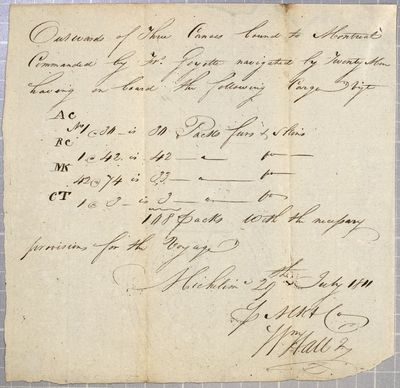 Outwards of Three Canoes bound to Montreal
Commanded by Frs. Goyette navigated by Twenty Men
having on board the following Cargo
AC
No. 1 @ 30 — is 30 Packs furs & skins
RC
1 @ 42 — is 42 — do
MK
42 @ 74 is 33 — do
CT
1 @ 3 — is 3 — do
108 Packs With the necessary
provisions for the Voyage
Michilim. 29th July 1811
Hall